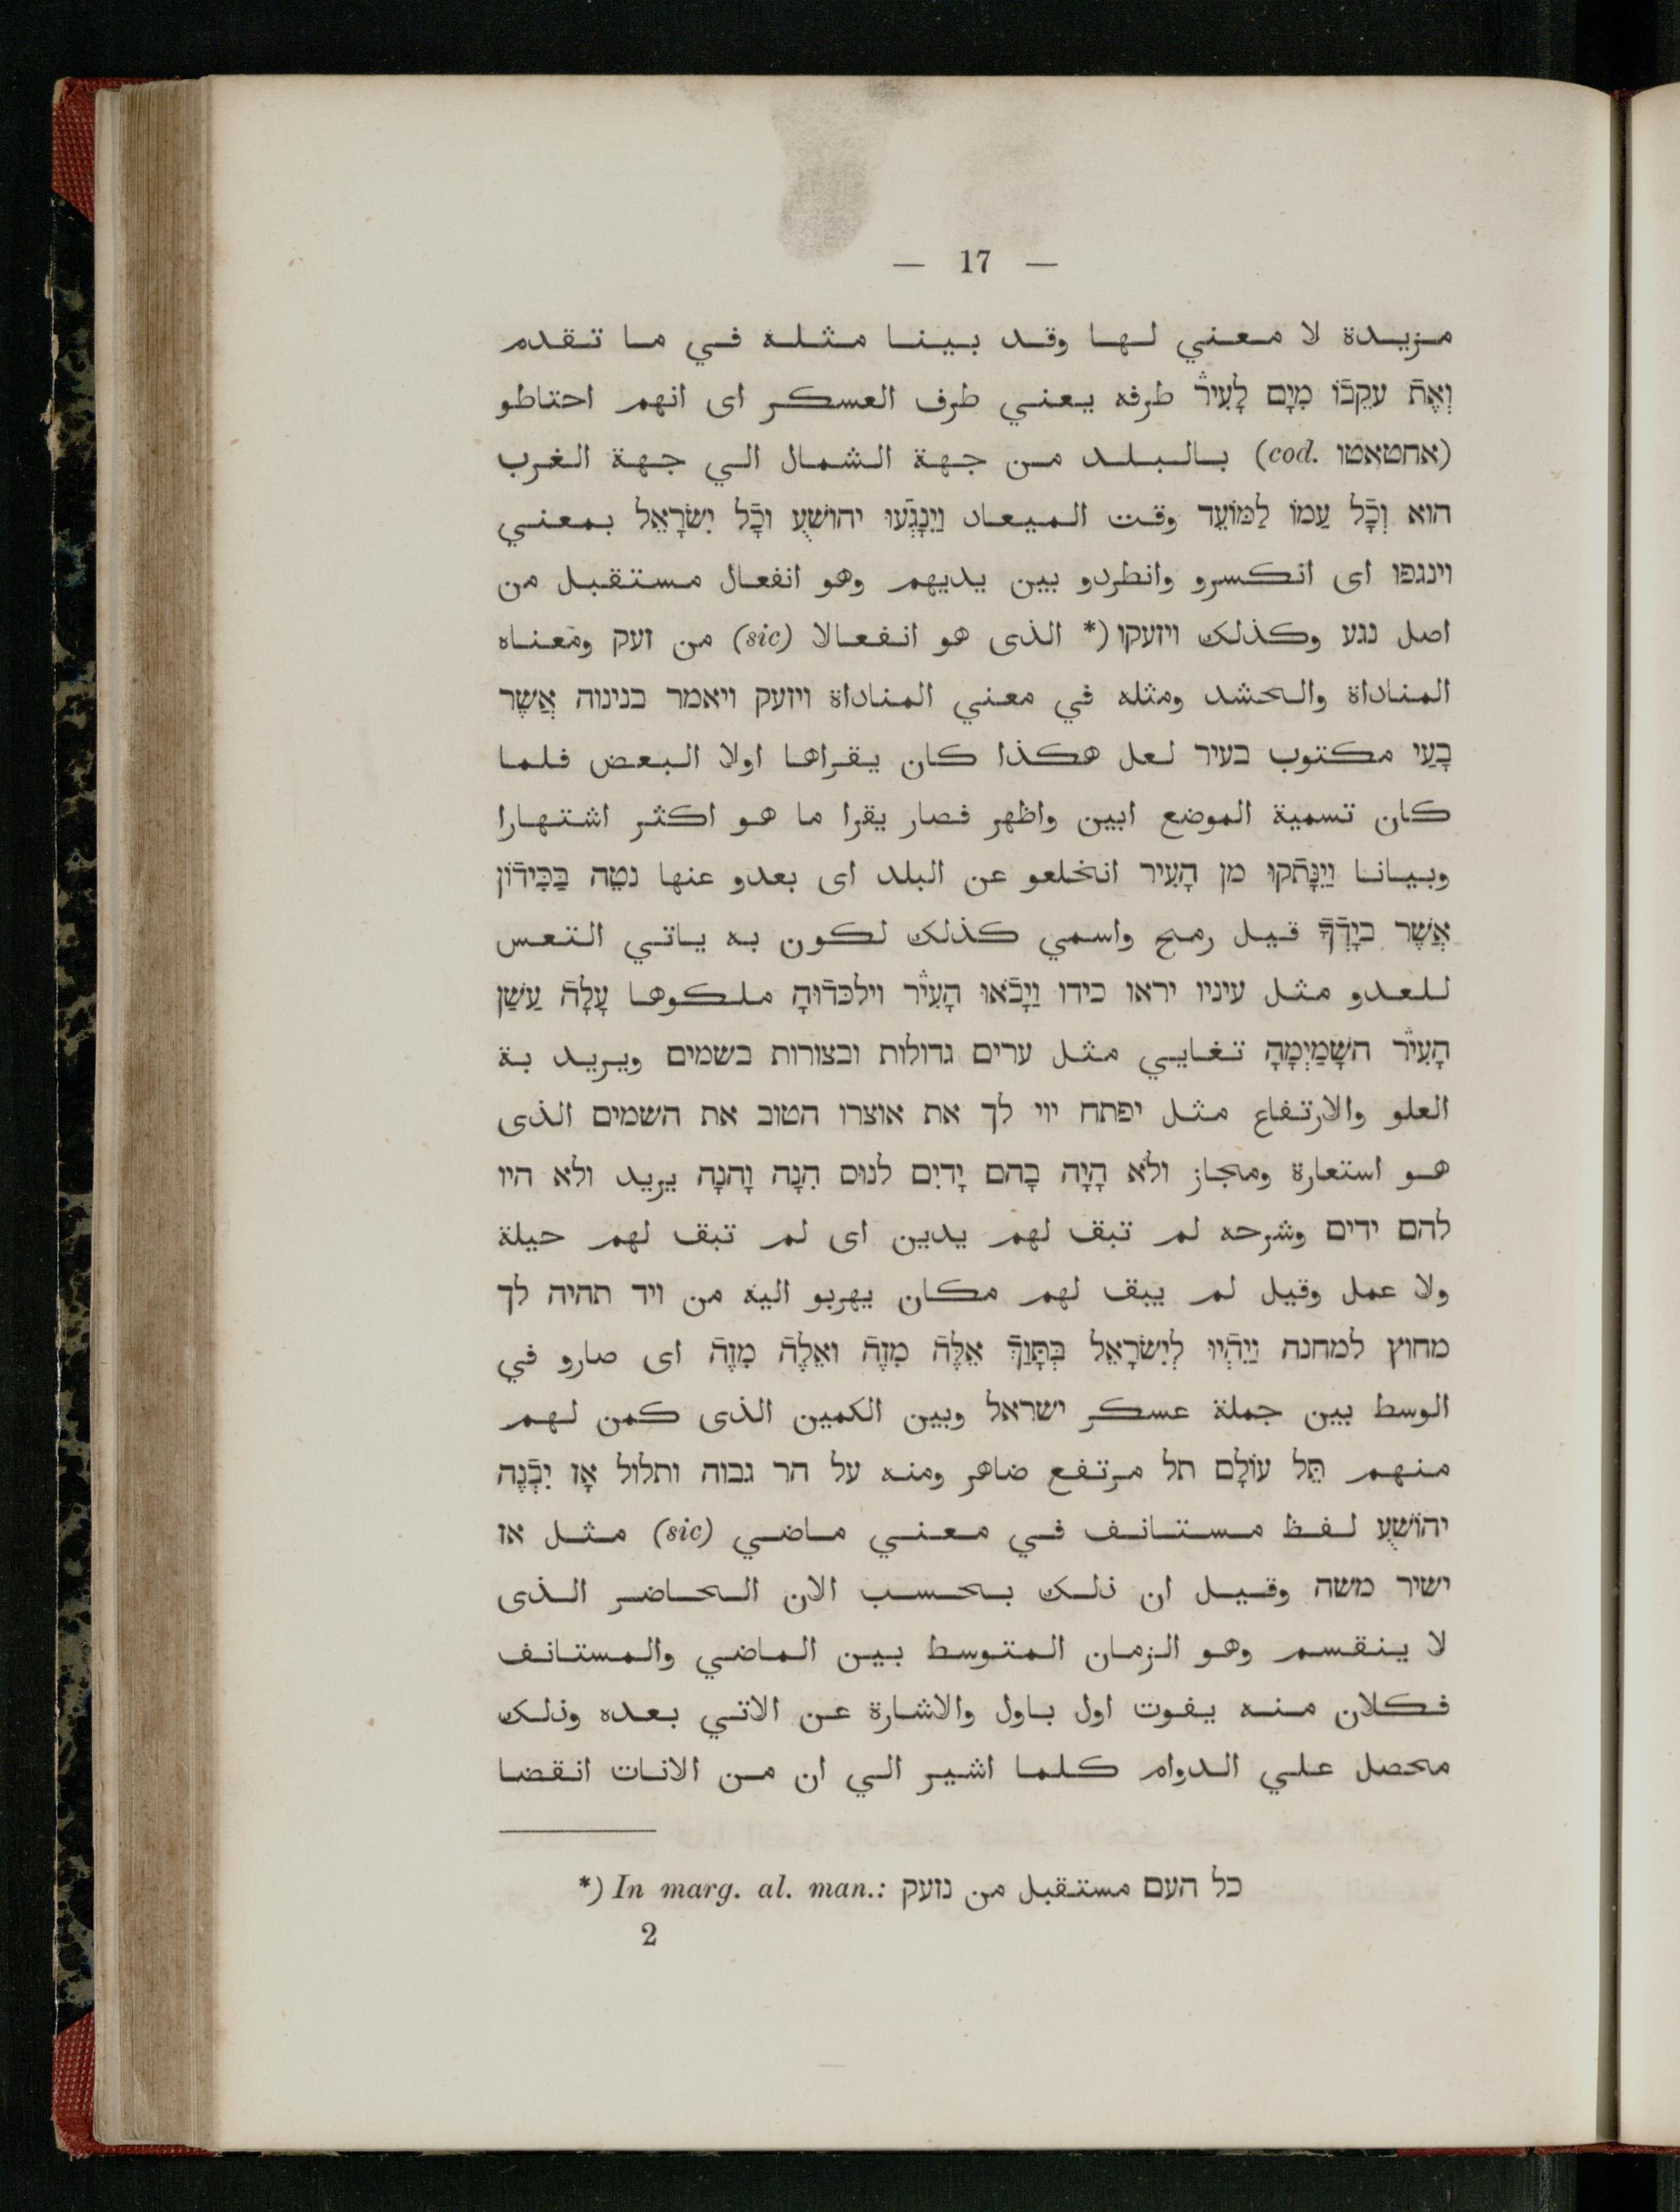 — 17 —
مزيدة لا معني لها وقد بينا مثله في ما تقدم
וְאֶתֿ עקֵבֿוֹ מִיָם לָעִירֿ طرفه يعني طرف العسكر اى انهم احتاطو
(אחטאטו cod.) بالبلد من جهة الشمال الي جهة الغرب
הוא וְכָֿל עַמוֹ לַמּוֹעֵד وقت الميعاد וַיִנָגְֿעוּ יהושֻׁעַ וכָֿל יִשׂרָאֵל بمعني
וינגפו اى انكسرو وانطردو بين يديهم وهو انفعال مستقبل من
اصل נגע وكذلك ויזעקו (* الذى هو انفعالا (sic) من זעק ومعناه
المناداة والحشد ومثله في معني المناداة ויזעק ויאמר בנינוה אֲשֶׁר
בָעַי مكتوب בעיר لعل هكذا كان يقراها اولا البعض فلما
كان تسمية الموضع ابين واظهر فصار يقرا ما هو اكثر اشتهارا
وبيانا וַיִנָּתְֿקוּ מן הָעִיר انخلعو عن البلد اى بعدو عنها נטֵה בַּכִּידֿוֹן
אֲשֶׁר בּיָדְֿךָֿ قيل رمح واسمي كذلك لكون به ياتي التعس
للعدو مثل עיניו יראו כידו וַיָבֹֿאוּ הָעִירֿ וילכּדֿוּהָ ملكوها עָלָהֿ עַשַׁן
הָעִירֿ השָׁמַיְמָהָ تغايي مثل ערים גדולות ובצורות בשמים ويريد بة
العلو والارتفاع مثل יפתח ייי לך את אוצרו הטוב את השמים الذى
هو استعارة ومجاز ולֹא הָיָה בָהם יָדיִם לנוּס הֵנָה וָהנָה يريد ולא היו
להם ידים وشرحه لم تبق لهم يدين اى لم تبق لهم حيلة
ولا عمل وقيل لم يبق لهم مكان يهربو اليه من ויד תהיה לך
מחוץ למחנה וַיִהְֿיוּ לְיִשׂרָאֵל בְּתָּוֶךְֿ אֵלֶּהֿ מִזֶהֿ ואֵלֶהֿ מִזֶהֿ اى صارو في
الوسط بين جملة عسكر ישראל وبين الكمين الذى كمن لهم
منهم תֵּל עוֹלָם תל مرتفع ضاهر ومنه על הר גבוה ותלול אָז יִבְֿנֶה
יהוֹשֻׁעַ لفظ مستانف في معني ماضي (sic) مثل אז
ישיר משה وقيل ان ذلك بحسب الان الحاضر الذى
لا ينقسم وهو الزمان المتوسط بين الماضي والمستانف
فكلان منه يفوت اول باول والاشارة عن الاتي بعده وذلك
محصل علي الدوام كلما اشير الي ان من الانات انقضا
*) In marg. al. man.: כל העם مستقبل من נזעק
2